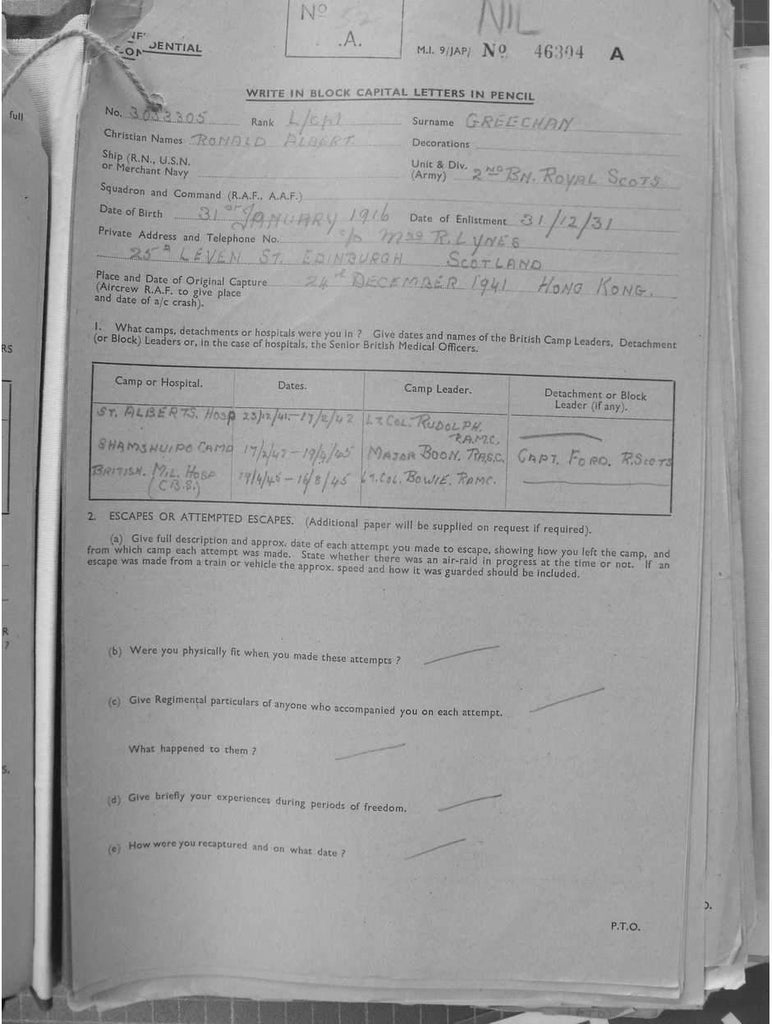 NIL
Nº
.A.
DENTIAL
M.I. 9/JAP/ Nº 46304 A
WRITE IN BLOCK CAPITAL LETTERS IN PENCIL
full
No. Rank L/Cpl Surname GREECHAN
Christian Names RONALD ALBERT Decorations
Ship (R.N., U.S.N. or Merchant Navy
Unit & Div. (Army) 2ND BN. ROYAL SCOTS
Squadron and Command (R.A.F., A.A.F.)
Date of Birth 31st JANUARY 1916 Date of Enlistment 31/12/31
Private Address and Telephone No. c/o MRS R. LYNES
25A LEVEN ST. EDINBURGH SCOTLAND
Place and Date of Original Capture 24th DECEMBER 1941 HONG KONG.
(Aircrew R.A.F. to give place
and date of a/c crash).
1. What camps, detachments or hospitals were you in ? Give dates and names of the British Camp Leaders, Detachment
(or Block) Leaders or, in the case of hospitals, the Senior British Medical Officers.
RS
Camp or Hospital. Dates. Camp Leader. Detachment or Block Leader (if any).
ST. ALBERTS. HOSP 23/12/41-17/2/42 LT. COL. RUDOLPH. R.A.M.C.
SHAMSHUIPO CAMP 17/2/42-19/4/45 MAJOR BOON. R.A.S.C. CAPT. FORD. R. SCOTS
BRITISH. MIL. HOSP (C.B.S.) 19/4/45-16/8/45 LT. COL. BOWIE. RAMC.
2. ESCAPES OR ATTEMPTED ESCAPES. (Additional paper will be supplied on request if required).
(a) Give full description and approx. date of each attempt you made to escape, showing how you left the camp, and
from which camp each attempt was made. State whether there was an air-raid in progress at the time or not. If an
escape was made from a train or vehicle the approx. speed and how it was guarded should be included.
R
?
(b) Were you physically fit when you made these attempts ?
(c) Give Regimental particulars of anyone who accompanied you on each attempt.
What happened to them ?
S.
(d) Give briefly your experiences during periods of freedom.
(e) How were you recaptured and on what date ?
P.T.O.